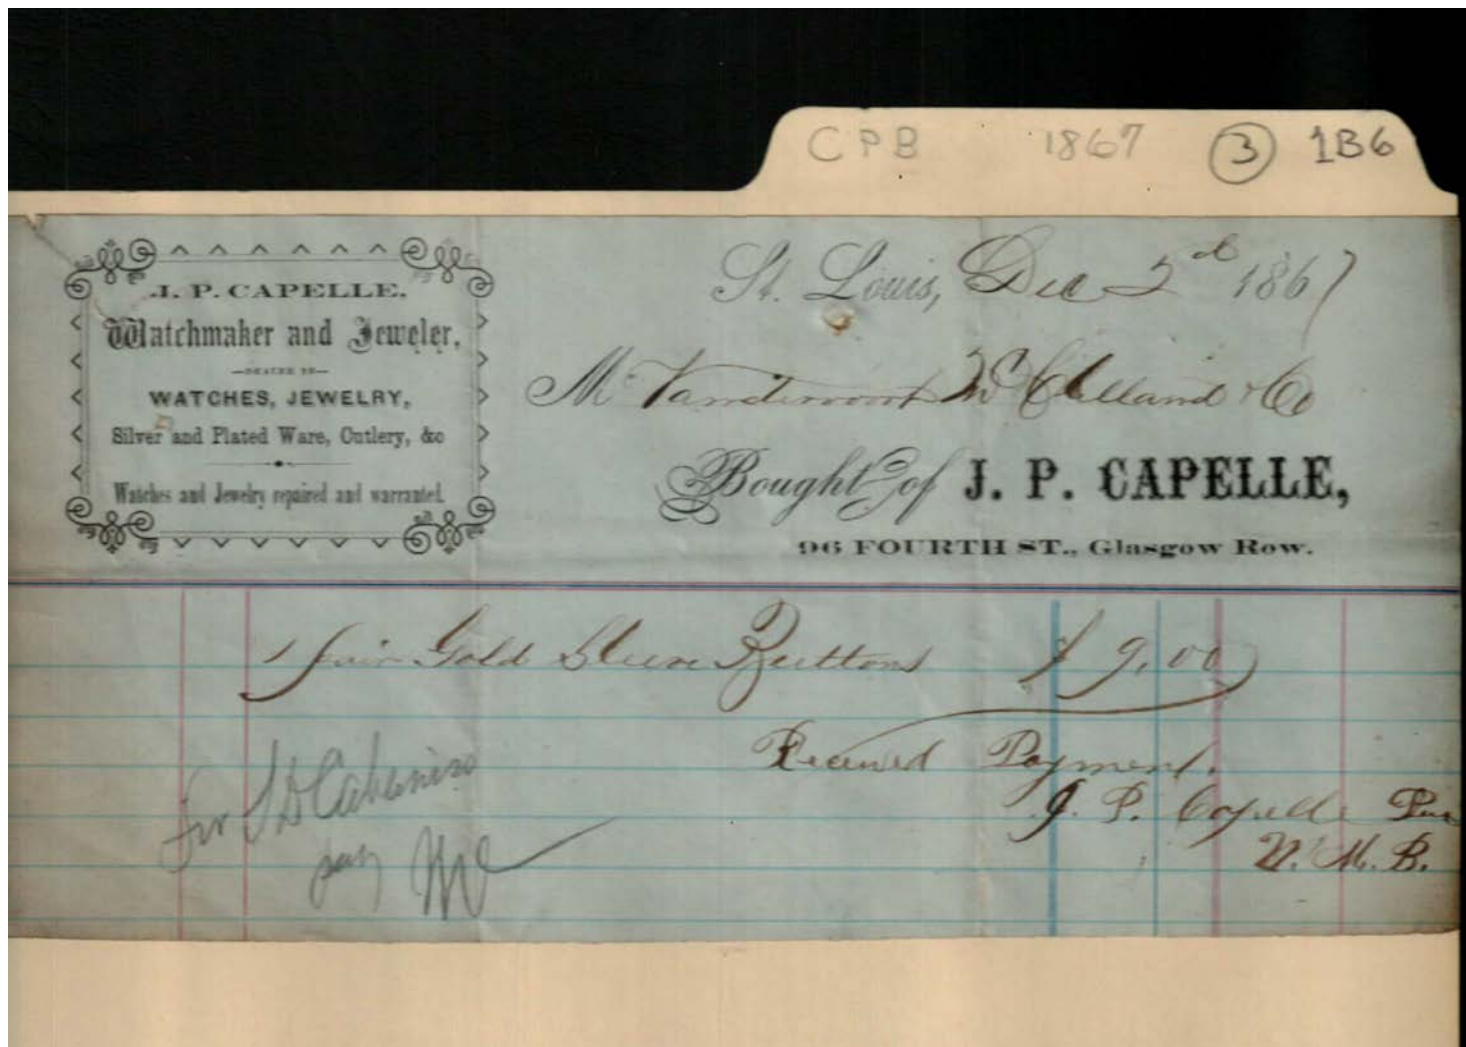 CPB 1867 3 1B6
J. P. CAPELLE.
Watchmaker and Jeweler,
—DEALER IN—
WATCHES, JEWELRY,
Silver and Plated Ware, Cutlery, &c
Watches and Jewelry repaired and warranted.
St. Louis, Dec 2d 1867
M Vandervoort McClelland & Co
Bought of J. P. CAPELLE,
96 FOURTH ST., Glasgow Row.
1 pair Gold Sleeve Buttons $ 9,00
Received Payment.
J. P. Capelle Per
V. M. B.
For
pay